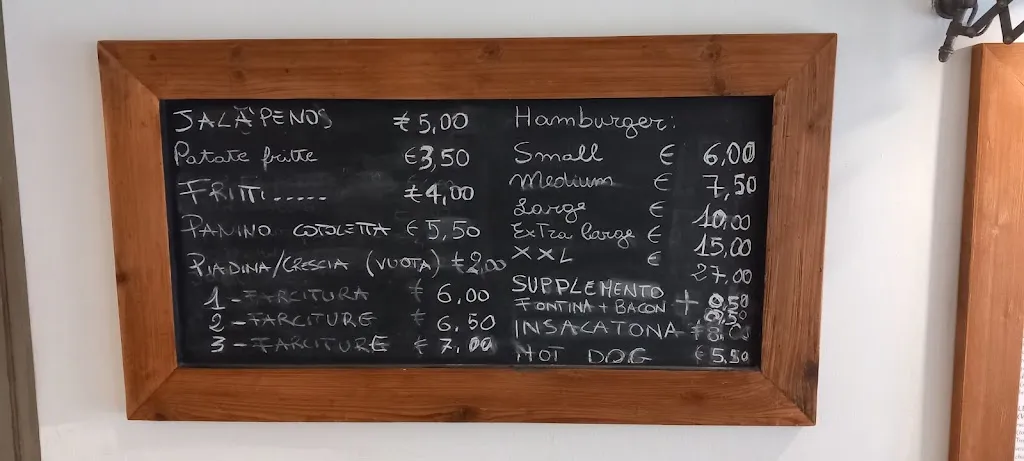 JALÃPENOS € 5,00
Patate fritte € 3,50
FRITTI..... € 4,00
PANINO COTOLETTA € 5,50
PIADINA/CRESCIA (VUOTA) € 2,00
1 - FARCITURA € 6,00
2 - FARCITURE € 6,50
3 - FARCITURE € 7,00
Hamburger:
Small € 6,00
Medium € 7,50
Large € 10,00
Extra large € 15,00
XXL € 27,00
SUPPLEMENTO + 0,50
FONTINA + BACON 0,50
INSACATONA € 8,00
HOT DOG € 5,50